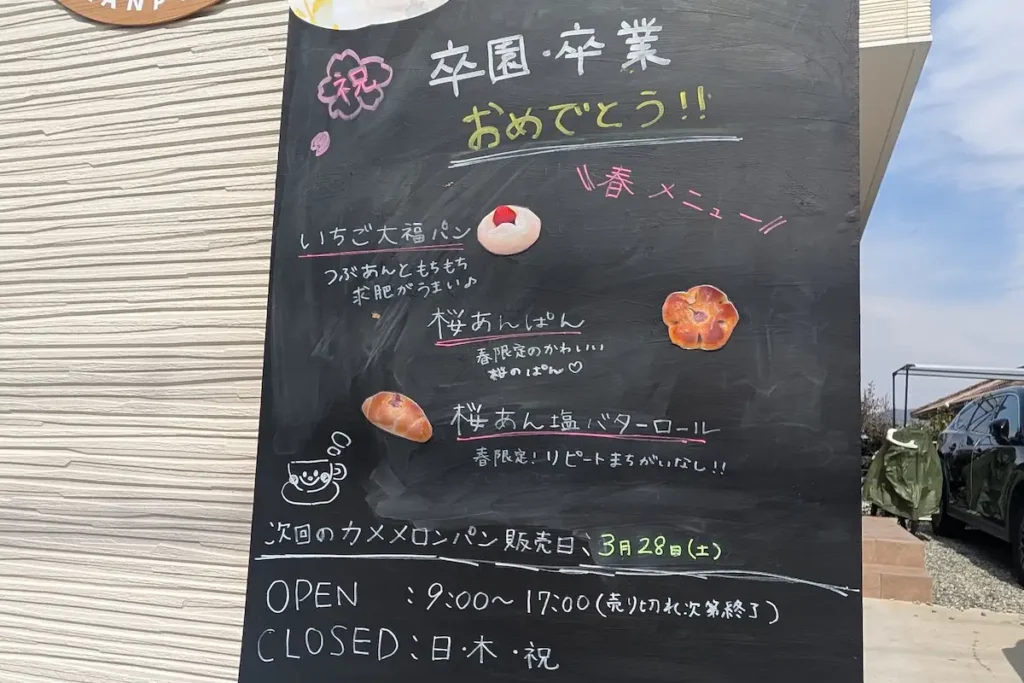 祝
卒園・卒業
おめでとう!!
春メニュー
いちご大福パン
つぶあんともちもち
求肥がうまい♪
桜あんぱん
春限定のかわいい
桜のぱん♡
桜あん塩バターロール
春限定!リピートまちがいなし!!
次回のカメメロンパン販売日、3月28日(土)
OPEN :9:00〜17:00(売り切れ次第終了)
CLOSED:日・木・祝